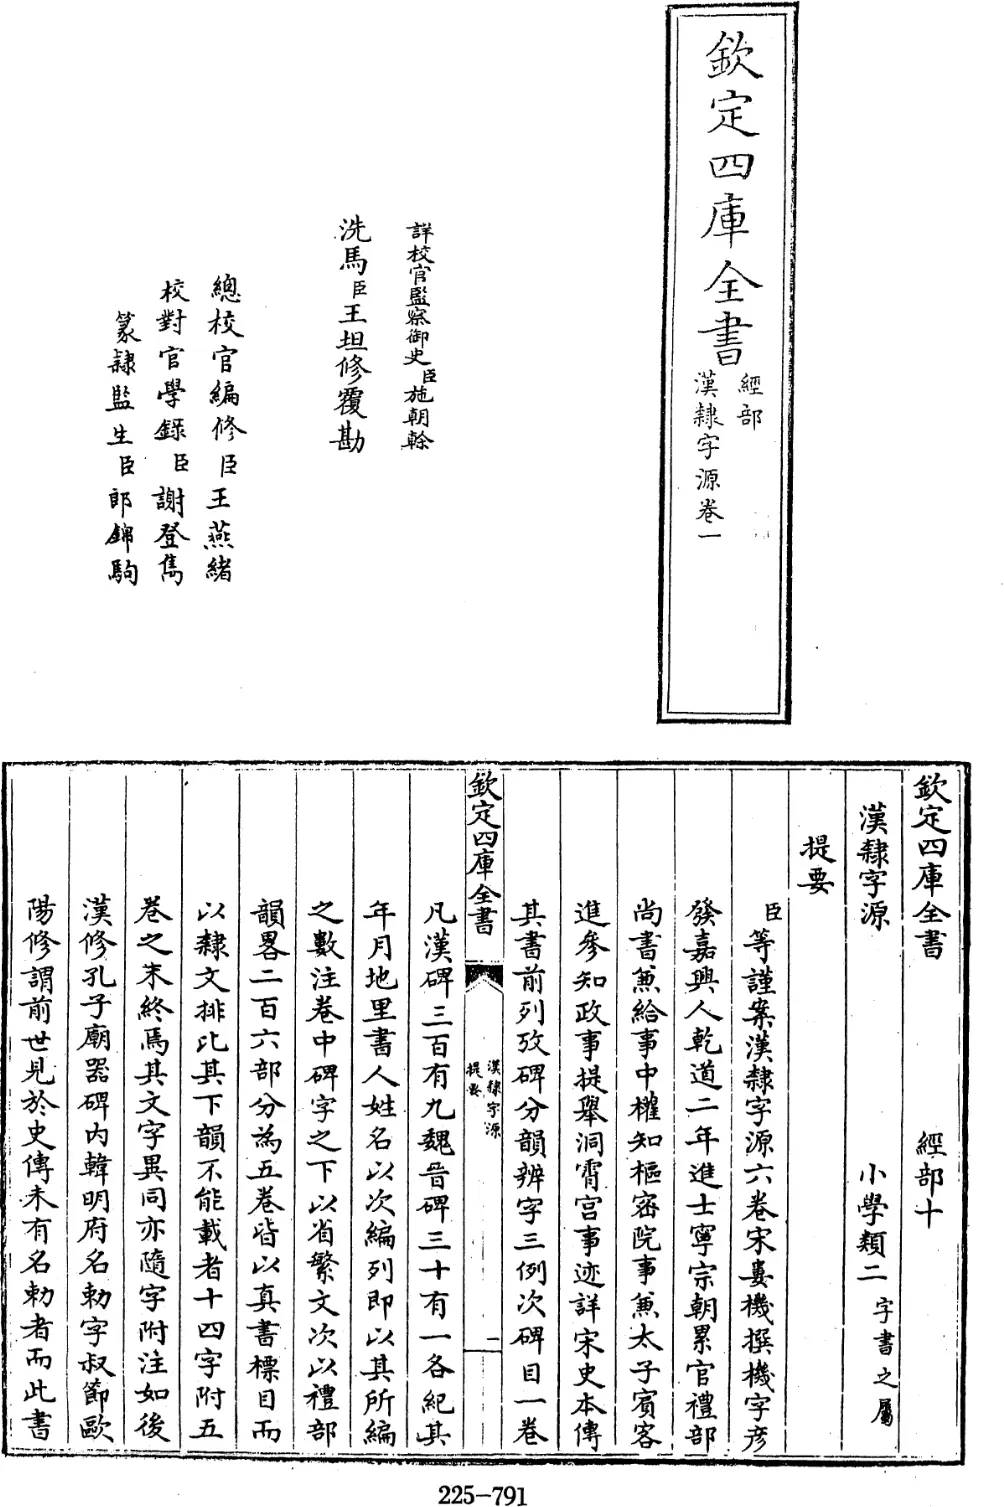 欽定四庫全書
經部
漢隸字源卷一
詳校官監察御史臣施朝榦
洗馬臣王坦修覆勘
總校官編修臣王燕緒
校對官學錄臣謝登雋
篆隸監生臣郎錦駒
欽定四庫全書 經部十
漢隸字源 小學類二字書之屬
提要
臣等謹案漢隸字源六卷宋婁機撰機字彥
發嘉興人乾道二年進士寧宗朝累官禮部
尚書兼給事中權知樞密院事兼太子賓客
進參知政事提舉洞霄宫事迹詳宋史本傳
其書前列攷碑分韻辨字三例次碑目一卷
欽定四庫全書
漢隸字源
提要
一
凡漢碑三百有九魏晋碑三十有一各紀其
年月地里書人姓名以次編列即以其所編
之數注卷中碑字之下以省繁文次以禮部
韻畧二百六部分為五卷皆以真書標目而
以隸文排比其下韻不能載者十四字附五
卷之末終焉其文字異同亦隨字附注如後
漢修孔子廟器碑内韓明府名勑字叔節歐
陽修謂前世見於史傳未有名勑者而此書
225-791